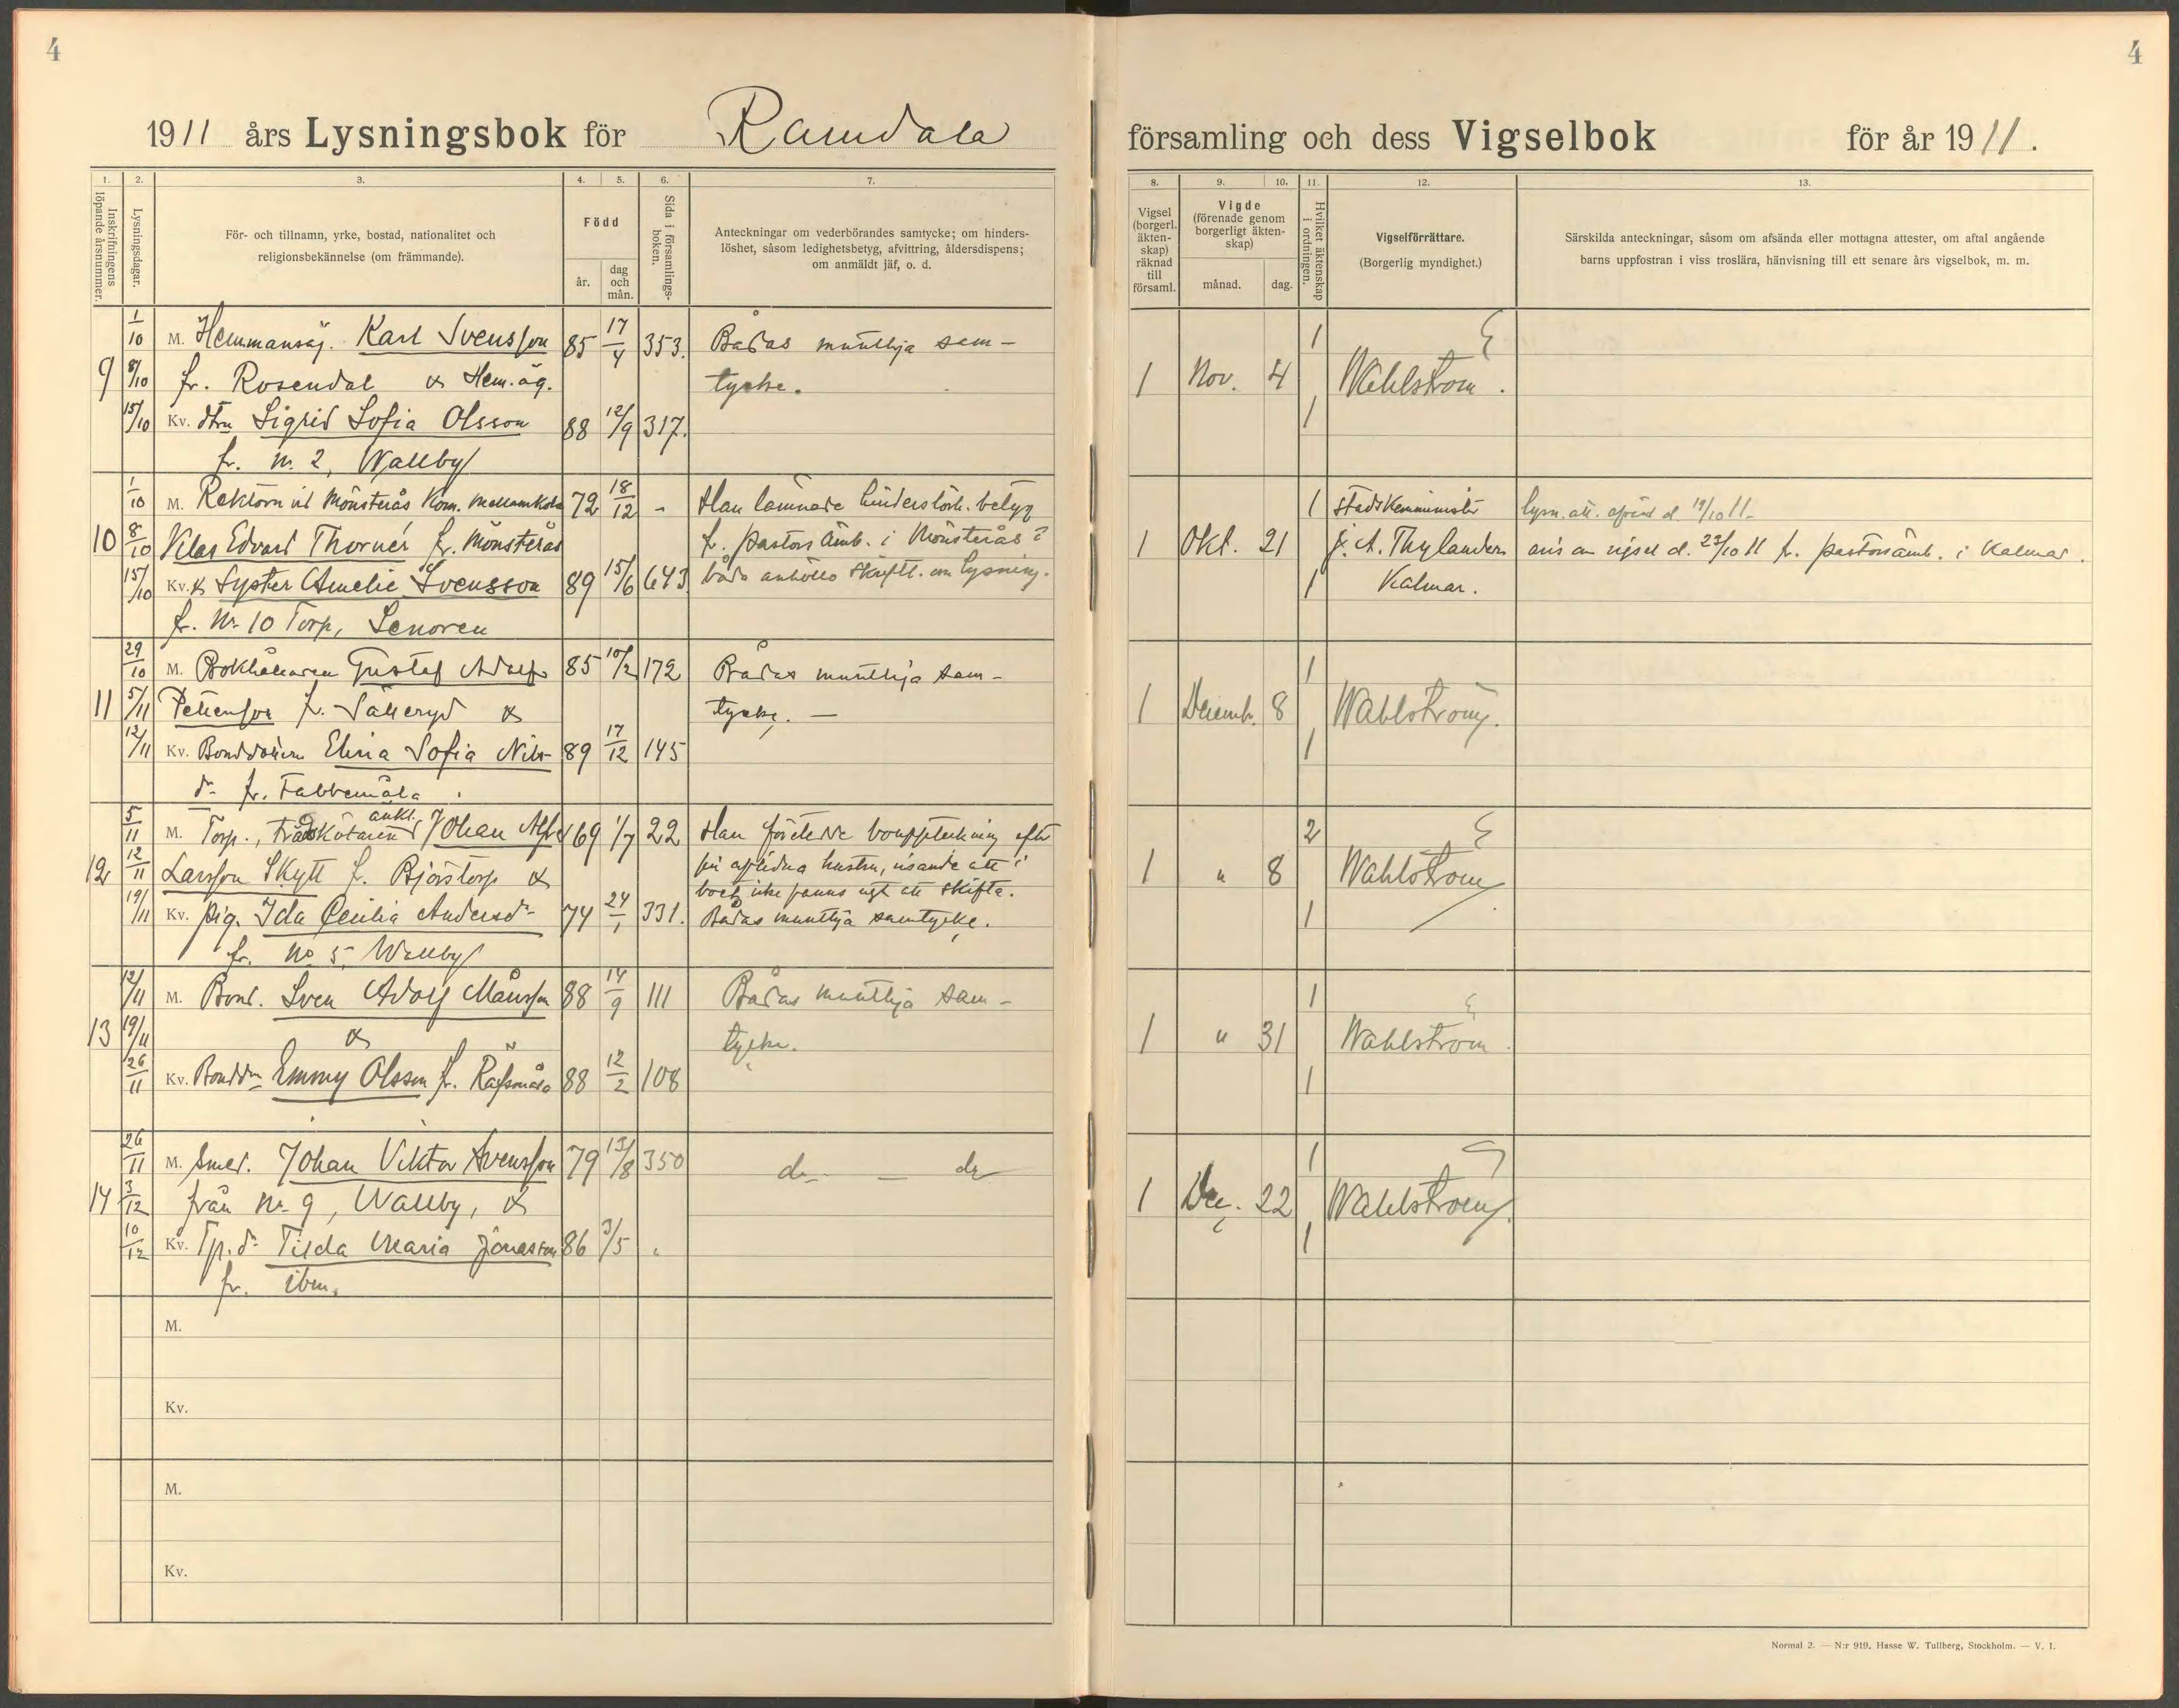 4
1911 års Lysningsbok för Ramdala
1.
2.
3.
4.
5.
6.
7.
Inskrifningens löpande årsnummer.
Lysningsdagar.
För- och tillnamn, yrke, bostad, nationalitet och
religionsbekännelse (om främmande).
Född
år.
dag
och
mån.
Sida i församlings-
boken.
Anteckningar om vederbörandes samtycke; om hinders-
löshet, såsom ledighetsbetyg, afvittring, åldersdispens;
om anmäldt jäf, o. d.
1/10 M. Hemmansäg. Karl Svensson 85 17/4 353. Bådas muntliga sam-
9 8/10 fr. Rosendal & Hem.äg. tycke.
15/10 Kv. dtrn Sigrid Sofia Olsson 88 12/9 317.
fr. Nr. 2, Wallby
1/10 M. Rektorn vid Mönsterås Kom. Mellanskola 72 18/12 - Han lämnade hinderslösh. betyg
10 8/10 Klas Edvard Thornér fr. Mönsterås fr. PastorsÄmb. i Mönsterås
15/10 Kv. & Syster Amelie Svensson 89 15/6 643 båda anhöllo skriftl. om lysning.
fr. Nr. 10 Torp, Senoren
29/10 M. Bokhållaren Gustaf Adolf 85 10/2 172 Bådas muntliga sam-
11 5/11 Pettersson fr. Säлleryd & tycke. —
12/11 Kv. Bonddottern Elina Sofia Nils- 89 17/12 145
dr fr. Fabbemåla
5/11 M. Torp., änkl. Johan Alfred 69 1/7 22 Han företedde bouppteckning efter
12 12/11 Larsson Skytt fr. Björstorp & sin aflidna hustru, visande att i
boet icke fanns ngt att skifta.
19/11 Kv. pig. Ida Cecilia Andersdr 74 24/1 331. Bådas muntliga samtycke.
fr. No 5, Wallby
12/11 M. Bond. Sven Adolf Månsson 88 14/9 111 Bådas muntliga sam-
13 19/11 & tycke.
26/11 Kv. Bonddrn Emmy Olsson fr. Räfsmåla 88 12/2 108
26/11 M. Smed. Johan Viktor Svensson 79 13/8 350 do — do
14 3/12 från Nr. 9, Wallby, &
10/12 Kv. Tp.dr Tilda Maria Jonasson 86 3/5 "
fr. ibm.
M.
Kv.
M.
Kv.
4
församling och dess Vigselbok för år 1911.
8.
9.
10.
11.
12.
13.
Vigsel
(borgerl.
äkten-
skap)
räknad
till
församl.
Vigde
(förenade genom
borgerligt äkten-
skap)
månad.
dag.
Hvilket äktenskap
i ordningen.
Vigselförrättare.
(Borgerlig myndighet.)
Särskilda anteckningar, såsom om afsända eller mottagna attester, om aftal angående
barns uppfostran i viss troslära, hänvisning till ett senare års vigselbok, m. m.
1
1 Nov. 4 Wahlström.
1
1 Stadskomminister lysn. att. afsänd d. 19/10 11.
1 Okt. 21 J. A. Thylander avis om vigsel d. 23/10 11 fr. pastorsämb. i Kalmar.
1 Kalmar.
1
1 Decemb. 8 Wahlström.
1
2
1 " 8 Wahlström
1
1
1 " 31 Wahlström.
1
1
1 Dec. 22 Wahlström.
1
Normal 2. — N:r 919. Hasse W. Tullberg, Stockholm. — V. I.